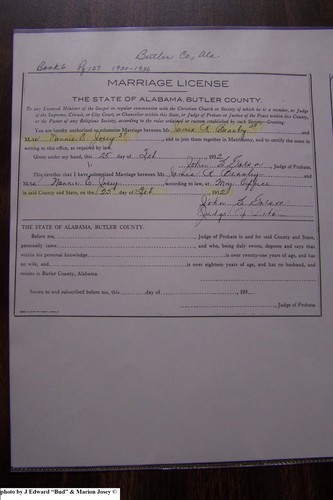 Butler Co, Ala
Book 6 Pg 127 1930-1936
MARRIAGE LICENSE
THE STATE OF ALABAMA, BUTLER COUNTY.
To any Licensed Minister of the Gospel in regular communion with the Christian Church or Society of which he is a member, or Judge
of the Supreme, Circuit, or City Court, or Chancellor within this State, or Judge of Probate or Justice of the Peace within this County,
or to the Pastor of any Religious Society, according to the rules ordained or custom established by such Society—Greeting:
You are hereby authorized to solemnize Marriage between Mr.
Mrs. Nannie Josey and to join them together in Matrimony, and to certify the same in
writing to this office, as required by law.
Given under my hand, this 25 day of Feb 1932
Judge of Probate.
This certifies that I have solemnized Marriage between Mr.
Mrs. Nannie E. Josey according to law, at My Office
in said County and State, on the 25 day of Feb 1932
THE STATE OF ALABAMA, BUTLER COUNTY.
Before me, Judge of Probate in and for said County and State,
personally came and who, being duly sworn, deposes and says that
within his personal knowledge is over twenty-one years of age, and has
no wife, and is over eighteen years of age, and has no husband, and
resides in Butler County, Alabama.
Sworn to and subscribed before me, this day of 193
Judge of Probate
photo by J Edward "Bud" & Marion Josey ©